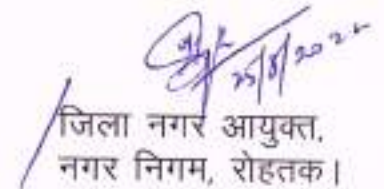 25/8/2022
जिला नगर आयुक्त,
नगर निगम, रोहतक।